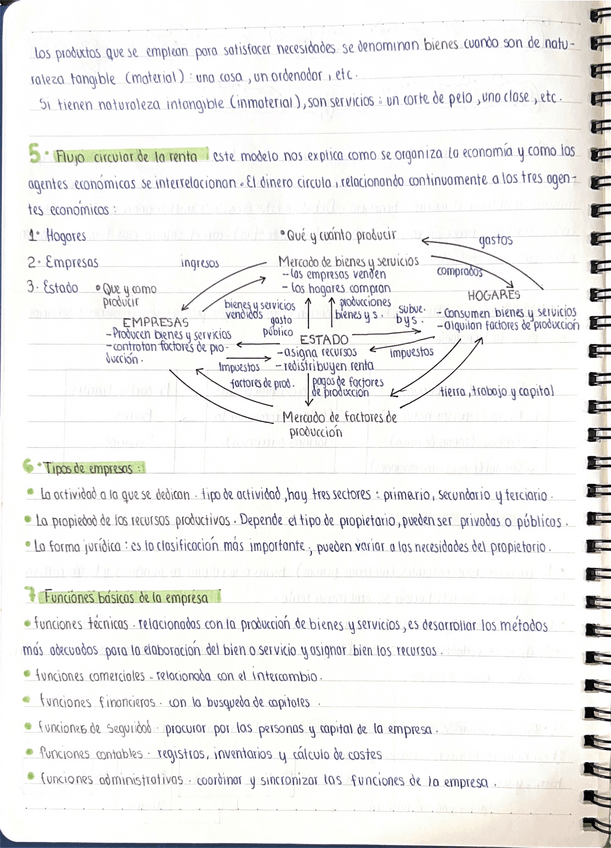 Los productos que se emplean para satisfacer necesidades se denominan bienes cuando son de natu-
raleza tangible (material) : una casa, un ordenador, etc.
Si tienen naturaleza intangible (inmaterial), son servicios : un corte de pelo, una clase, etc.
5. Flujo circular de la renta este modelo nos explica como se organiza la economía y como los
agentes económicos se interrelacionan. El dinero circula, relacionando continuamente a los tres agen-
tes económicos :
1. Hogares
2. Empresas
3. Estado
• Qué y cuánto producir
gastos
ingresos
Mercado de bienes y servicios
- las empresas venden
- los hogares compran
comprados
• Que y como
producir
HOGARES
- Consumen bienes y servicios
- alquilan factores de producción
bienes y servicios
vendidos
gasto
público
producciones
bienes y s.
subve.
b y s.
EMPRESAS
- Producen bienes y servicios
- contratan factores de pro-
ducción.
ESTADO
- asigna recursos
- redistribuyen renta
impuestos
Impuestos
factores de prod.
pagos de factores
de producción
tierra, trabajo y capital
Mercado de factores de
producción
6. Tipos de empresas :
• La actividad a la que se dedican. tipo de actividad, hay tres sectores : primario, secundario y terciario.
• La propiedad de los recursos productivos. Depende el tipo de propietario, pueden ser privadas o públicas.
• La forma jurídica : es la clasificación más importante, pueden variar a las necesidades del propietorio.
7 Funciones básicas de la empresa
• funciones técnicas. relacionadas con la producción de bienes y servicios, es desarrollar los métodos
más adecuados para la elaboración del bien o servicio y asignar bien los recursos.
• funciones comerciales - relacionada con el intercambio.
• funciones financieros. con la busqueda de capitales.
• funciones de seguridad. procurar por las personas y capital de la empresa.
• funciones contables. registros, inventarios y cálculo de costes
• funciones administrativas. coordinar y sincronizar las funciones de la empresa.